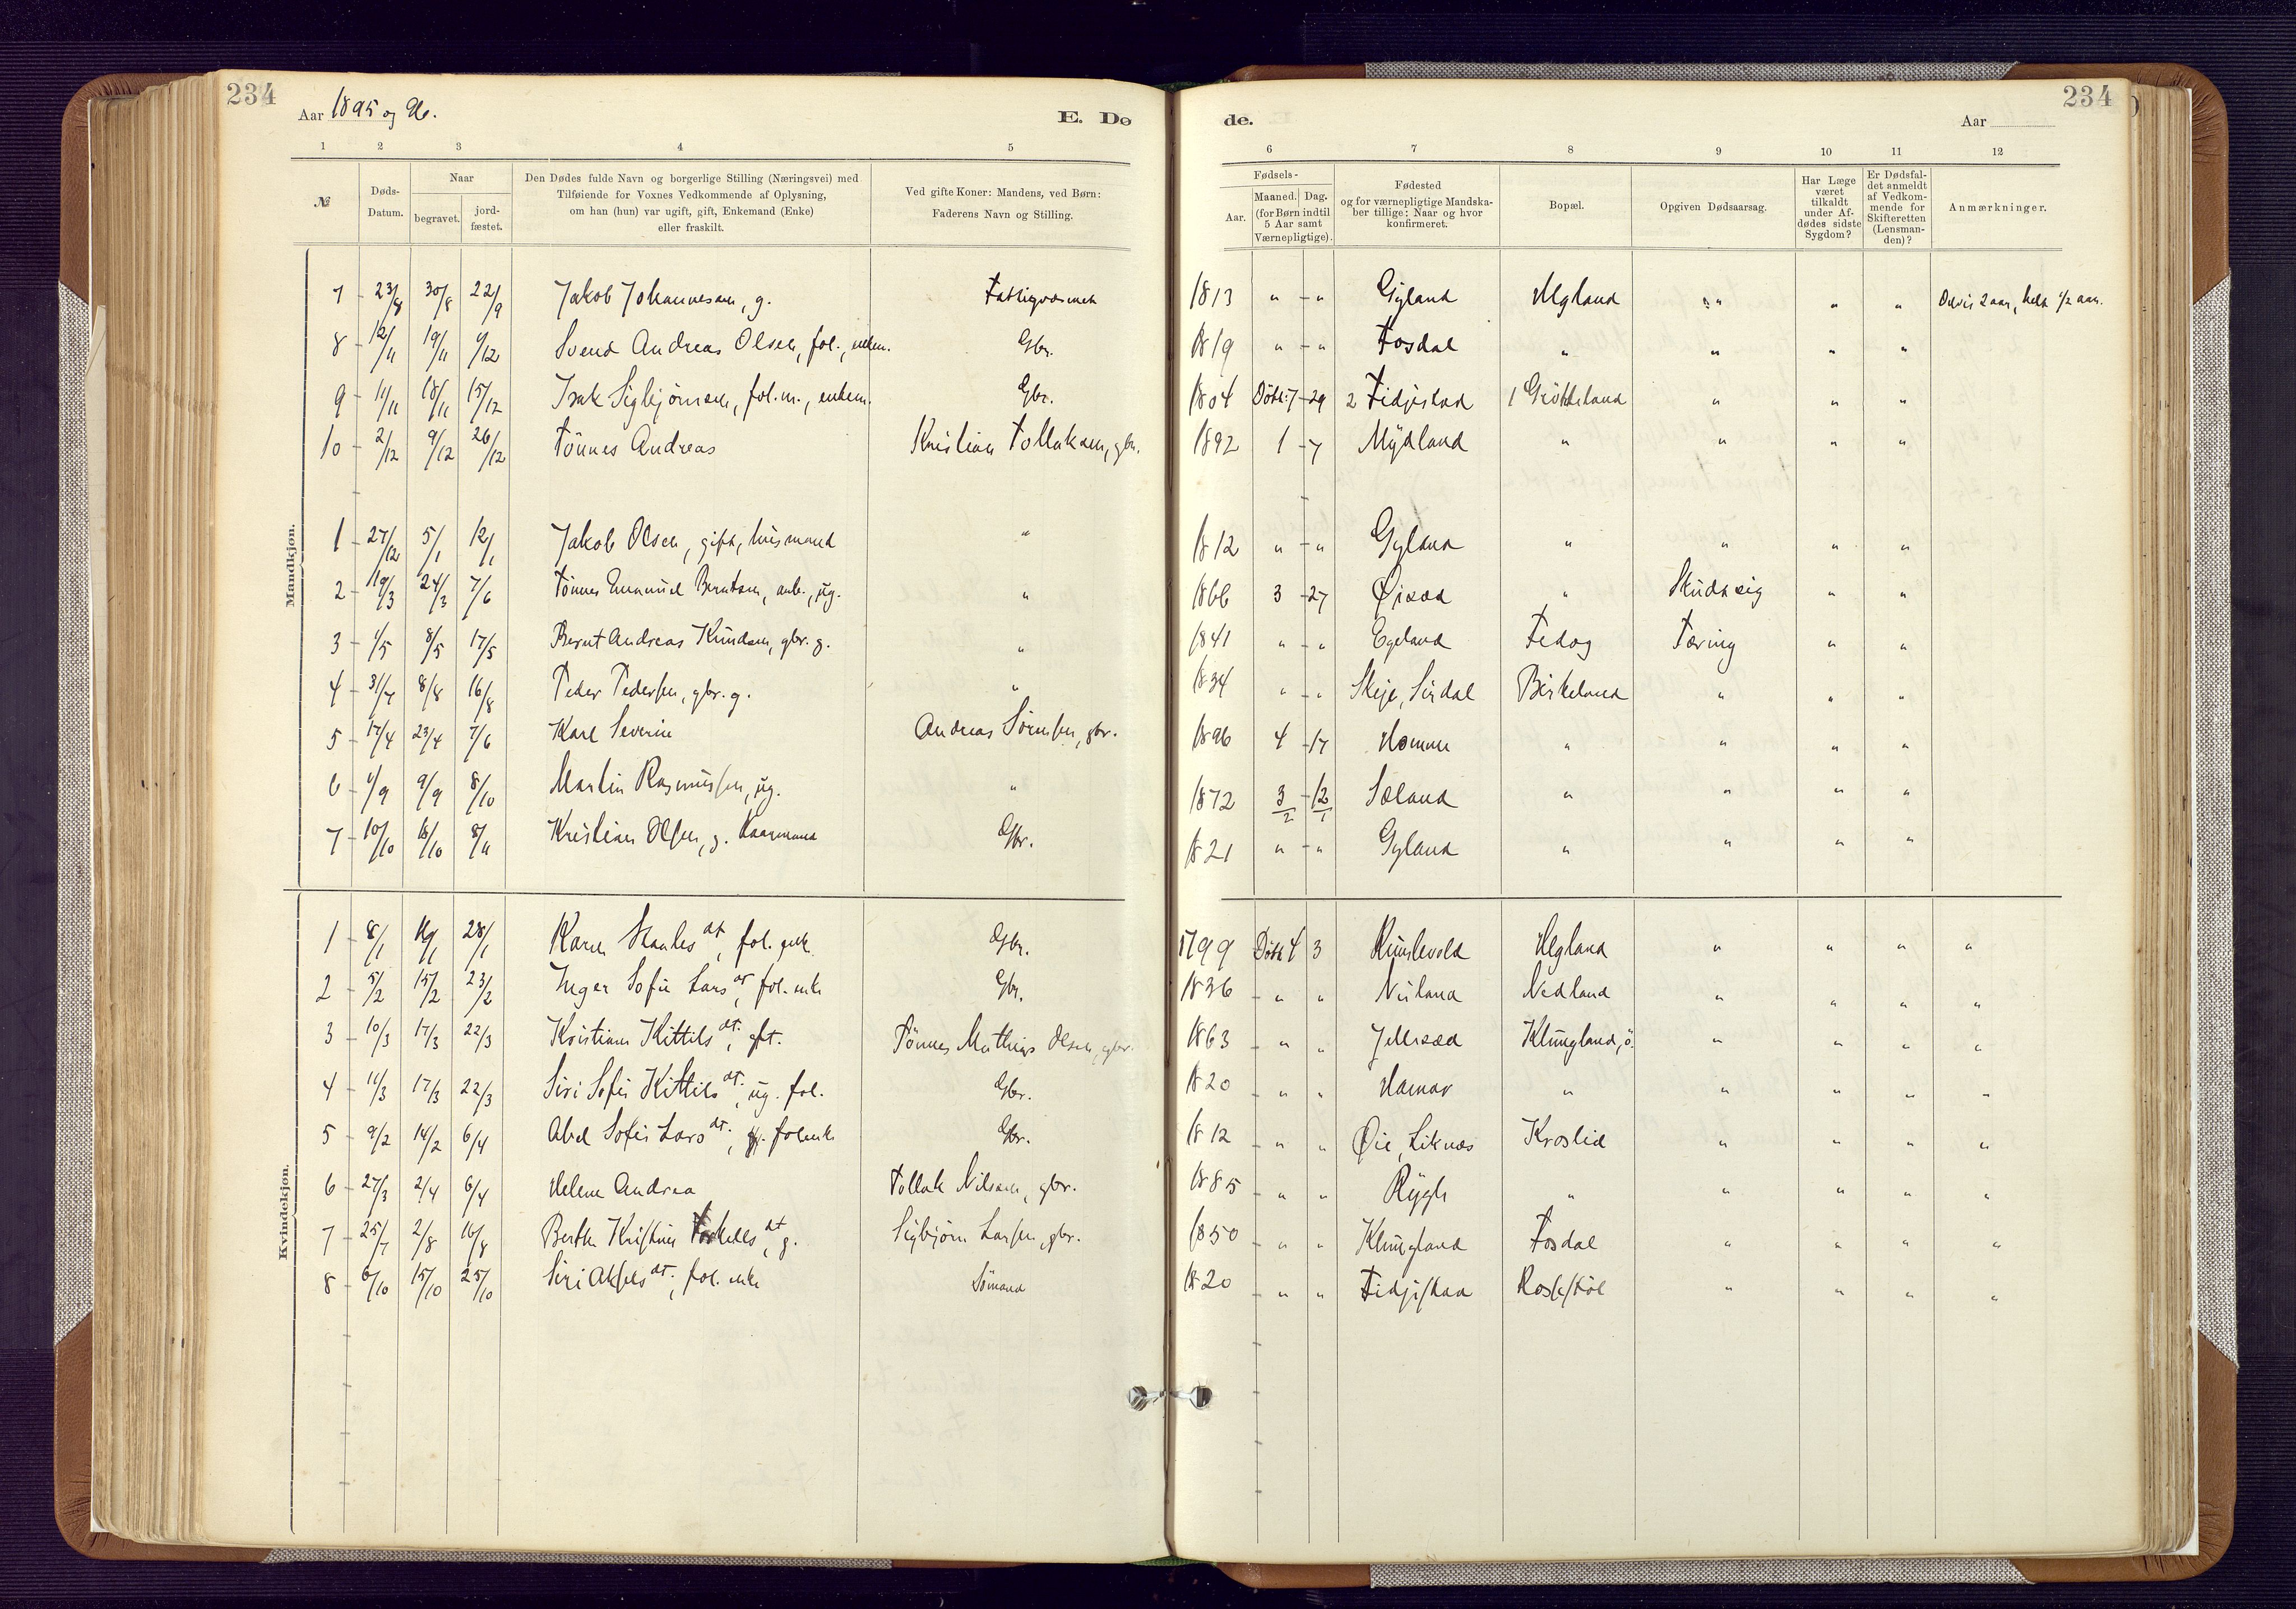 234
Aar 1895 og 96.
E. Dø
de.
Aar
234
1 2 3 4 5
6 7 8 9 10 11 12
№
Døds-
Datum.
Naar
begravet.
jord-
fæstet.
Den Dødes fulde Navn og borgerlige Stilling (Næringsvei) med
Tilføiende for Voxnes Vedkommende af Oplysning,
om han (hun) var ugift, gift, Enkemand (Enke)
eller fraskilt.
Ved gifte Koner: Mandens, ved Børn:
Faderens Navn og Stilling.
Fødsels-
Aar.
Maaned. Dag.
(for Børn indtil
5 Aar samt
Værnepligtige).
Fødested
og for værnepligtige Mandska-
ber tillige: Naar og hvor
konfirmeret.
Bopæl.
Opgiven Dødsaarsag.
Har Læge
været
tilkaldt
under Af-
dødes sidste
Sygdom?
Er Dødsfal-
det anmeldt
af Vedkom-
mende for
Skifteretten
(Lensman-
den)?
Anmærkninger.
Mandkjøn.
7 23/8 30/8 22/9 Jakob Johannesen, g. Fattigvæsenet 1813 " " Gyland Helgland " " " Delvis 2 aar, helt 1/2 aar.
8 12/11 19/11 1/12 Svend Andreas Olsen, fol., enkem. Gbr. 1819 " " Fosdal " " " "
9 11/11 18/11 15/12 Isak Sigbjørnsen, fol.m., enkem. Gbr. 1804 Døbt: 7 29 2 Fidjestad 1 Grøtteland " " "
10 2/12 9/12 26/12 Tönnes Andreas Kristian Tollaksen, gbr. 1892 1 7 Mydland " " " "
1 27/12 5/1 12/1 Jakob Olsen, gift, husmand " 1812 " " Gyland " " " "
2 19/3 24/3 7/6 Tönnes Emanuel Berntsen, arb., ug. " 1866 3 27 Øisæd " Skudt sig " "
3 1/5 8/5 17/5 Bernt Andreas Knudsen, gbr. g. " 1841 " " Egeland Fedog Tæring " "
4 31/7 8/8 16/8 Peder Pedersen, gbr. g. " 1834 " " Skeje, Sirdal Birkeland " " "
5 17/4 23/4 7/6 Karl Severin Andreas Sörensen, gbr. 1896 4 17 Homme " " " "
6 1/9 9/9 8/10 Martin Rasmussen, ug. " 1872 3/2 12/1 Sæland " " " "
7 10/10 16/10 8/11 Kristian Olsen, g. Kaarmand Gbr. 1821 " " Gyland " " " "
Kvindekjøn.
1 8/1 16/1 28/1 Karen Staales dt, fol. enk. Gbr. 1799 Døbt 4 3 Kumlevold Helgland " " " "
2 5/2 15/2 23/2 Inger Sofie Lars dt, fol. enke Gbr. 1836 " " Nuland Nedland " " " "
3 10/3 17/3 22/3 Kristiane Kittils dt., gft. Tönnes Mathias Olsen, gbr. 1863 " " Jellesæd Klungland, ö. " " " "
4 11/3 17/3 22/3 Siri Sofie Kittils dt., ug. fol. Gbr. 1820 " " Hamar " " " " "
5 9/2 14/2 6/4 Abel Sofie Lars dt., folenke Gbr. 1812 " " Øie, Liknæs Kroslid " " " "
6 27/3 2/4 6/4 Helene Andrea Tollak Nilsen, gbr. 1885 " " Rygh " " " " "
7 25/7 2/8 16/8 Berthe Kristine Torkells dt, g. Sigbjørn Larsen, gbr. 1850 " " Klungland Fosdal " " " "
8 6/10 15/10 25/10 Siri Aksels dt., fol. enke Sömand 1820 " " Fidjestad Rossestöl " " " "